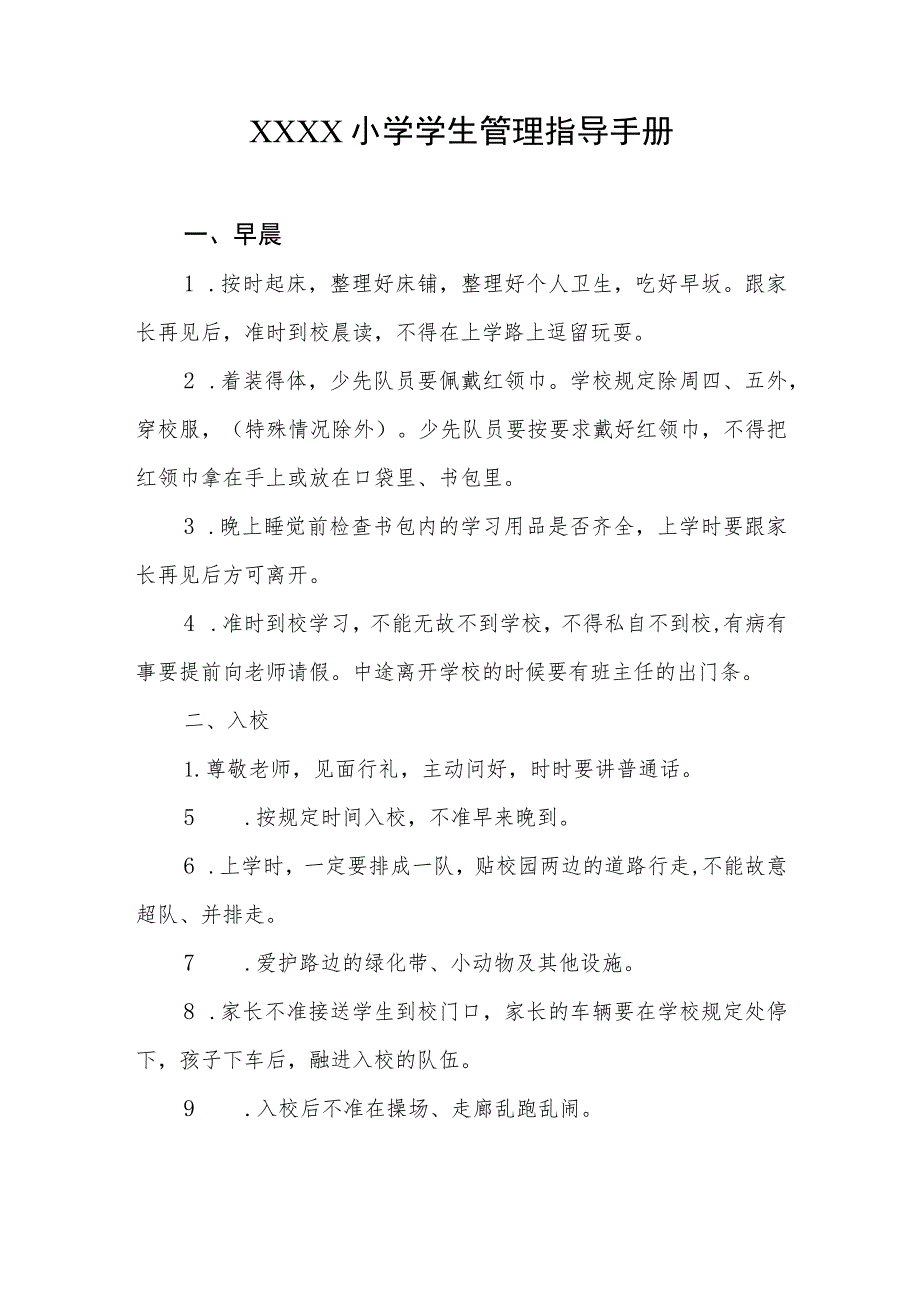 XXXX 小学学生管理指导手册
一、早晨
1 .按时起床，整理好床铺，整理好个人卫生，吃好早坂。跟家
长再见后，准时到校晨读，不得在上学路上逗留玩耍。
2 .着装得体，少先队员要佩戴红领巾。学校规定除周四、五外，
穿校服，（特殊情况除外）。少先队员要按要求戴好红领巾，不得把
红领巾拿在手上或放在口袋里、书包里。
3 .晚上睡觉前检查书包内的学习用品是否齐全，上学时要跟家
长再见后方可离开。
4 .准时到校学习，不能无故不到学校，不得私自不到校,有病有
事要提前向老师请假。中途离开学校的时候要有班主任的出门条。
二、入校
1.尊敬老师，见面行礼，主动问好，时时要讲普通话。
5 .按规定时间入校，不准早来晚到。
6 .上学时，一定要排成一队，贴校园两边的道路行走,不能故意
超队、并排走。
7 .爱护路边的绿化带、小动物及其他设施。
8 .家长不准接送学生到校门口，家长的车辆要在学校规定处停
下，孩子下车后，融进入校的队伍。
9 .入校后不准在操场、走廊乱跑乱闹。